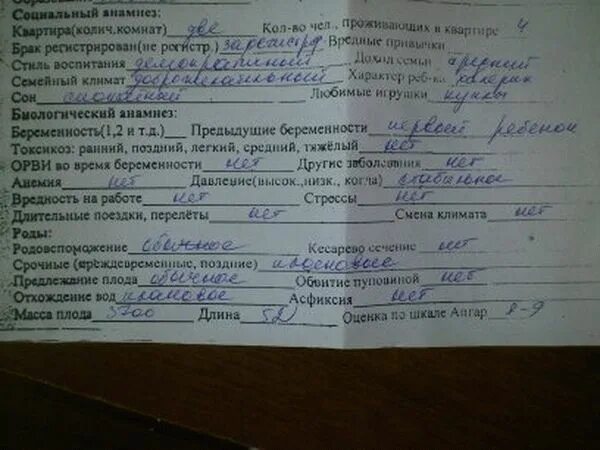 Социальный анамнез:
Квартира(колич.комнат) две Кол-во чел., проживающих в квартире 4
Брак регистрирован(не регистр.) зарегистр Вредные привычки
Стиль воспитания демократичный Доход семьи средний
Семейный климат доброжелательный Характер реб-ка холерик
Сон спокойный Любимые игрушки куклы
Биологический анамнез:
Беременность(1,2 и т.д.) Предыдущие беременности первый ребенок
Токсикоз: ранний, поздний, легкий, средний, тяжёлый нет
ОРВИ во время беременности нет Другие заболевания нет
Анемия нет Давление(высок.,низк., когда) стабильное
Вредность на работе нет Стрессы нет
Длительные поездки, перелёты нет Смена климата нет
Роды:
Родовспоможение обычное Кесарево сечение нет
Срочные (преждевременные, поздние)
Предлежание плода обычное Обвитие пуповиной нет
Отхождение вод плановое Асфиксия нет
Масса плода 3700 Длина 52 Оценка по шкале Апгар 8-9